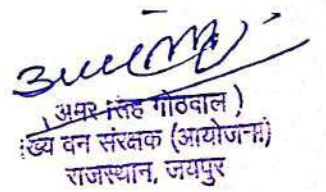 ( अमर सिंह गोठवाल )
ख्य वन संरक्षक (आयोजना)
राजस्थान, जयपुर